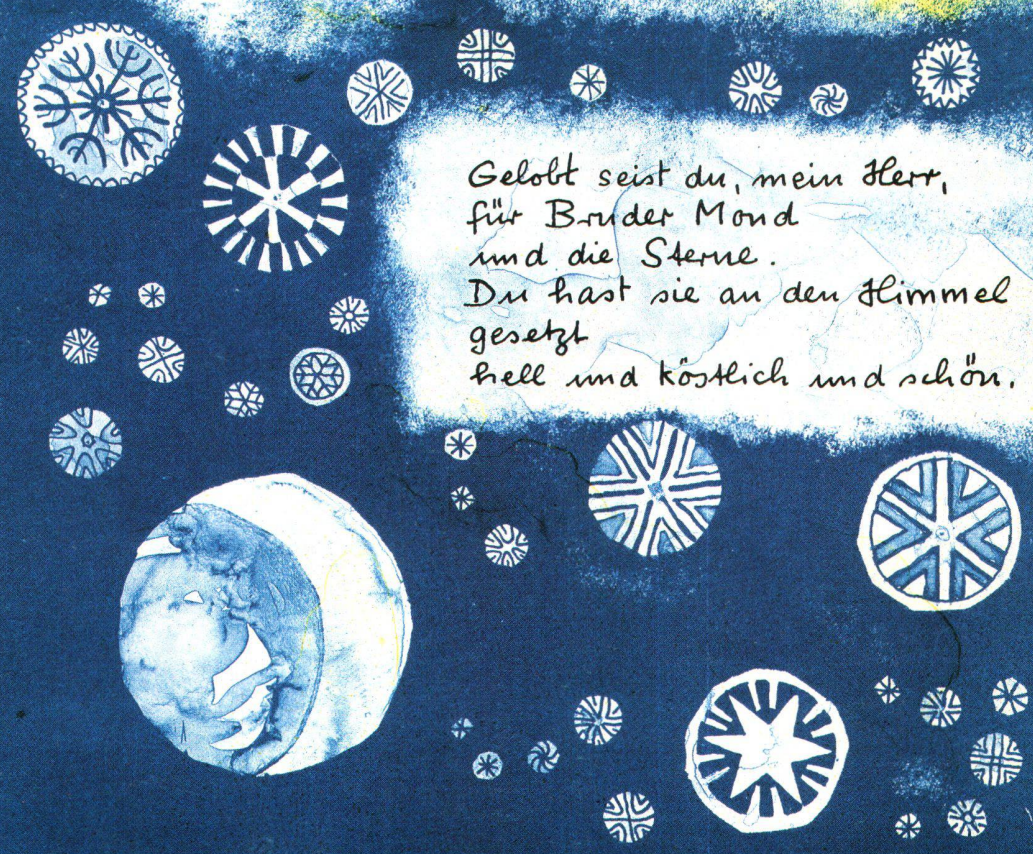 Gelobt seist du, mein Herr,
für Bruder Mond
und die Sterne.
Du hast sie an den Himmel
gesetzt
hell und köstlich und schön.